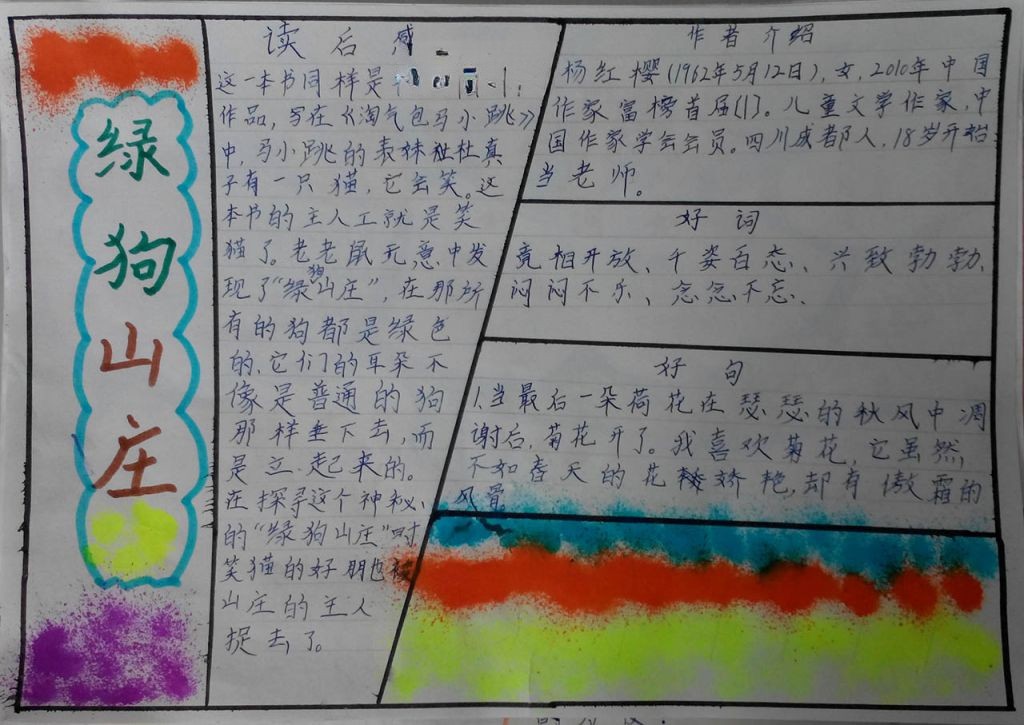 绿
狗
山
庄
读后感
这一本书同样是
作品，写在《淘气包马小跳》
中，马小跳的表妹杜真
子有一只猫，它会笑。这
本书的主人工就是笑
猫了。老老鼠无意中发
现了“绿狗山庄”，在那所
有的狗都是绿色
的，它们的耳朵不
像是普通的狗
那样垂下去，而
是立起来的。
在探寻这个神秘
的“绿狗山庄”时
笑猫的好朋也被
山庄的主人
捉去了。
作者介绍
杨红樱(1962年5月12日)，女，2010年中国
作家富榜首届(1)。儿童文学作家，中
国作家学会会员。四川成都人，18岁开始
当老师。
好词
竞相开放、千姿百态、兴致勃勃、
闷闷不乐、念念不忘、
好句
1.当最后一朵荷花在瑟瑟的秋风中凋
谢后，菊花开了。我喜欢菊花，它虽然
不如春天的花娇艳，却有傲霜的
风骨